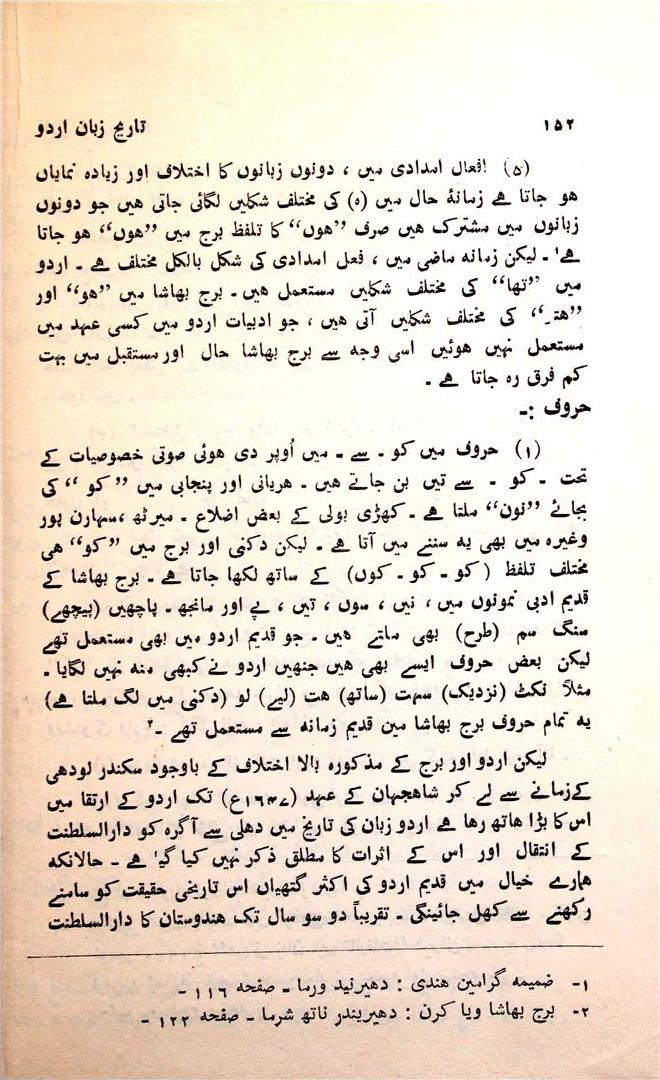 ۱۵۲
تاریخ زبان اردو
(۵) افعال امدادی میں ، دونوں زبانوں کا اختلاف اور زیادہ نمایاں
ہو جاتا ہے زمانۂ حال میں (ہ) کی مختلف شکلیں لگائی جاتی ہیں جو دونوں
زبانوں میں مشترک ہیں صرف ”ہوں“ کا تلفظ برج میں ”ہوں“ ہو جاتا
ہے۱ ۔ لیکن زمانہ ماضی میں ، فعل امدادی کی شکل بالکل مختلف ہے ۔ اردو
میں ”تھا“ کی مختلف شکلیں مستعمل ہیں ۔ برج بھاشا میں ”ہو“ اور
کی مختلف شکلیں آتی ہیں ، جو ادبیات اردو میں کسی عہد میں
مستعمل نہیں ہوئیں اسی وجہ سے برج بھاشا حال اور مستقبل میں بہت
کم فرق رہ جاتا ہے ۔
حروف :۔
(۱) حروف میں کو ۔ سے ۔ میں اُوپر دی ہوئی صوتی خصوصیات کے
تحت ۔ کو ۔ سے تیں بن جاتے ہیں ۔ ہریانی اور پنجابی میں ”کو“ کی
بجائے ”نوں“ ملتا ہے ۔ کھڑی بولی کے بعض اضلاع ۔ میرٹھ ، سہارن پور
وغیرہ میں بھی یہ سننے میں آتا ہے ۔ لیکن دکنی اور برج میں ”کو“ ہی
مختلف تلفظ (کو ۔ کو ۔ کوں) کے ساتھ لکھا جاتا ہے ۔ برج بھاشا کے
قدیم ادبی نمونوں میں ، نیں ، سوں ، تیں ، پے اور مانجھ ۔ پاچھیں (پیچھے)
سنگ سم (طرح) بھی ملتے ہیں ۔ جو قدیم اردو میں بھی مستعمل تھے
لیکن بعض حروف ایسے بھی ہیں جنہیں اردو نے کبھی منہ نہیں لگایا ۔
مثلاً نکٹ (نزدیک) سہت (ساتھ) ہت (لیے) لو (دکنی میں لگ ملتا ہے)
یہ تمام حروف برج بھاشا مین قدیم زمانہ سے مستعمل تھے ۔۲
لیکن اردو اور برج کے مذکورہ بالا اختلاف کے باوجود سکندر لودھی
کے زمانے سے لے کر شاہجہان کے عہد (۱٦۴۷ع) تک اردو کے ارتقا میں
اس کا بڑا ہاتھ رہا ہے اردو زبان کی تاریخ میں دہلی سے آگرہ کو دارالسلطنت
کے انتقال اور اس کے اثرات کا مطلق ذکر نہیں کیا گیا ہے ۔ حالانکہ
ہمارے خیال میں قدیم اردو کی اکثر گتھیاں اس تاریخی حقیقت کو سامنے
رکھنے سے کھل جائینگی ۔ تقریباً دو سو سال تک ہندوستان کا دارالسلطنت
۱- ضمیمہ گرامین ہندی : دھیرنید ورما ۔ صفحہ ۱۱٦ -
۲- برج بھاشا ویا کرن : دھیریندر ناتھ شرما ۔ صفحہ ۱۲۲ -